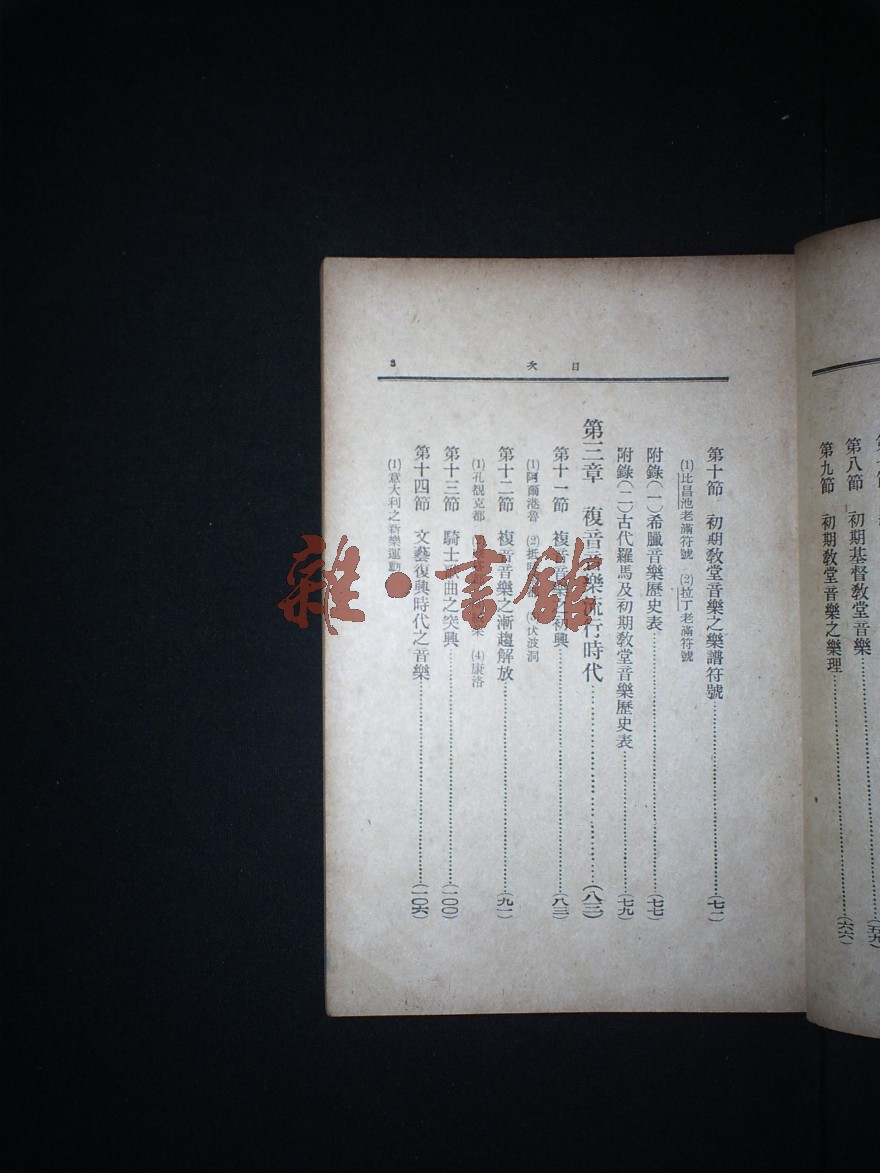 第八節 初期基督教堂音樂
(五九)
第九節 初期教堂音樂之樂理……(六六)
目次 3
第十節 初期教堂音樂之樂譜符號……(七一)
(1)比昌池老滿符號 (2)拉丁老滿符號
附錄(一)希臘音樂歷史表……(七七)
附錄(二)古代羅馬及初期教堂音樂歷史表……(七九)
第三章 複音音樂流行時代……(八三)
第十一節 複音音樂之初興……(八三)
(1)阿爾港魯 (2) (3)伏波洞
第十二節 複音音樂之漸趨解放……(九一)
(1)孔覩克都 (4)康洛
第十三節 騎士歌曲之突興……(一〇〇)
第十四節 文藝復興時代之音樂……(一〇六)
(1)意大利之新樂運動
雜·書館